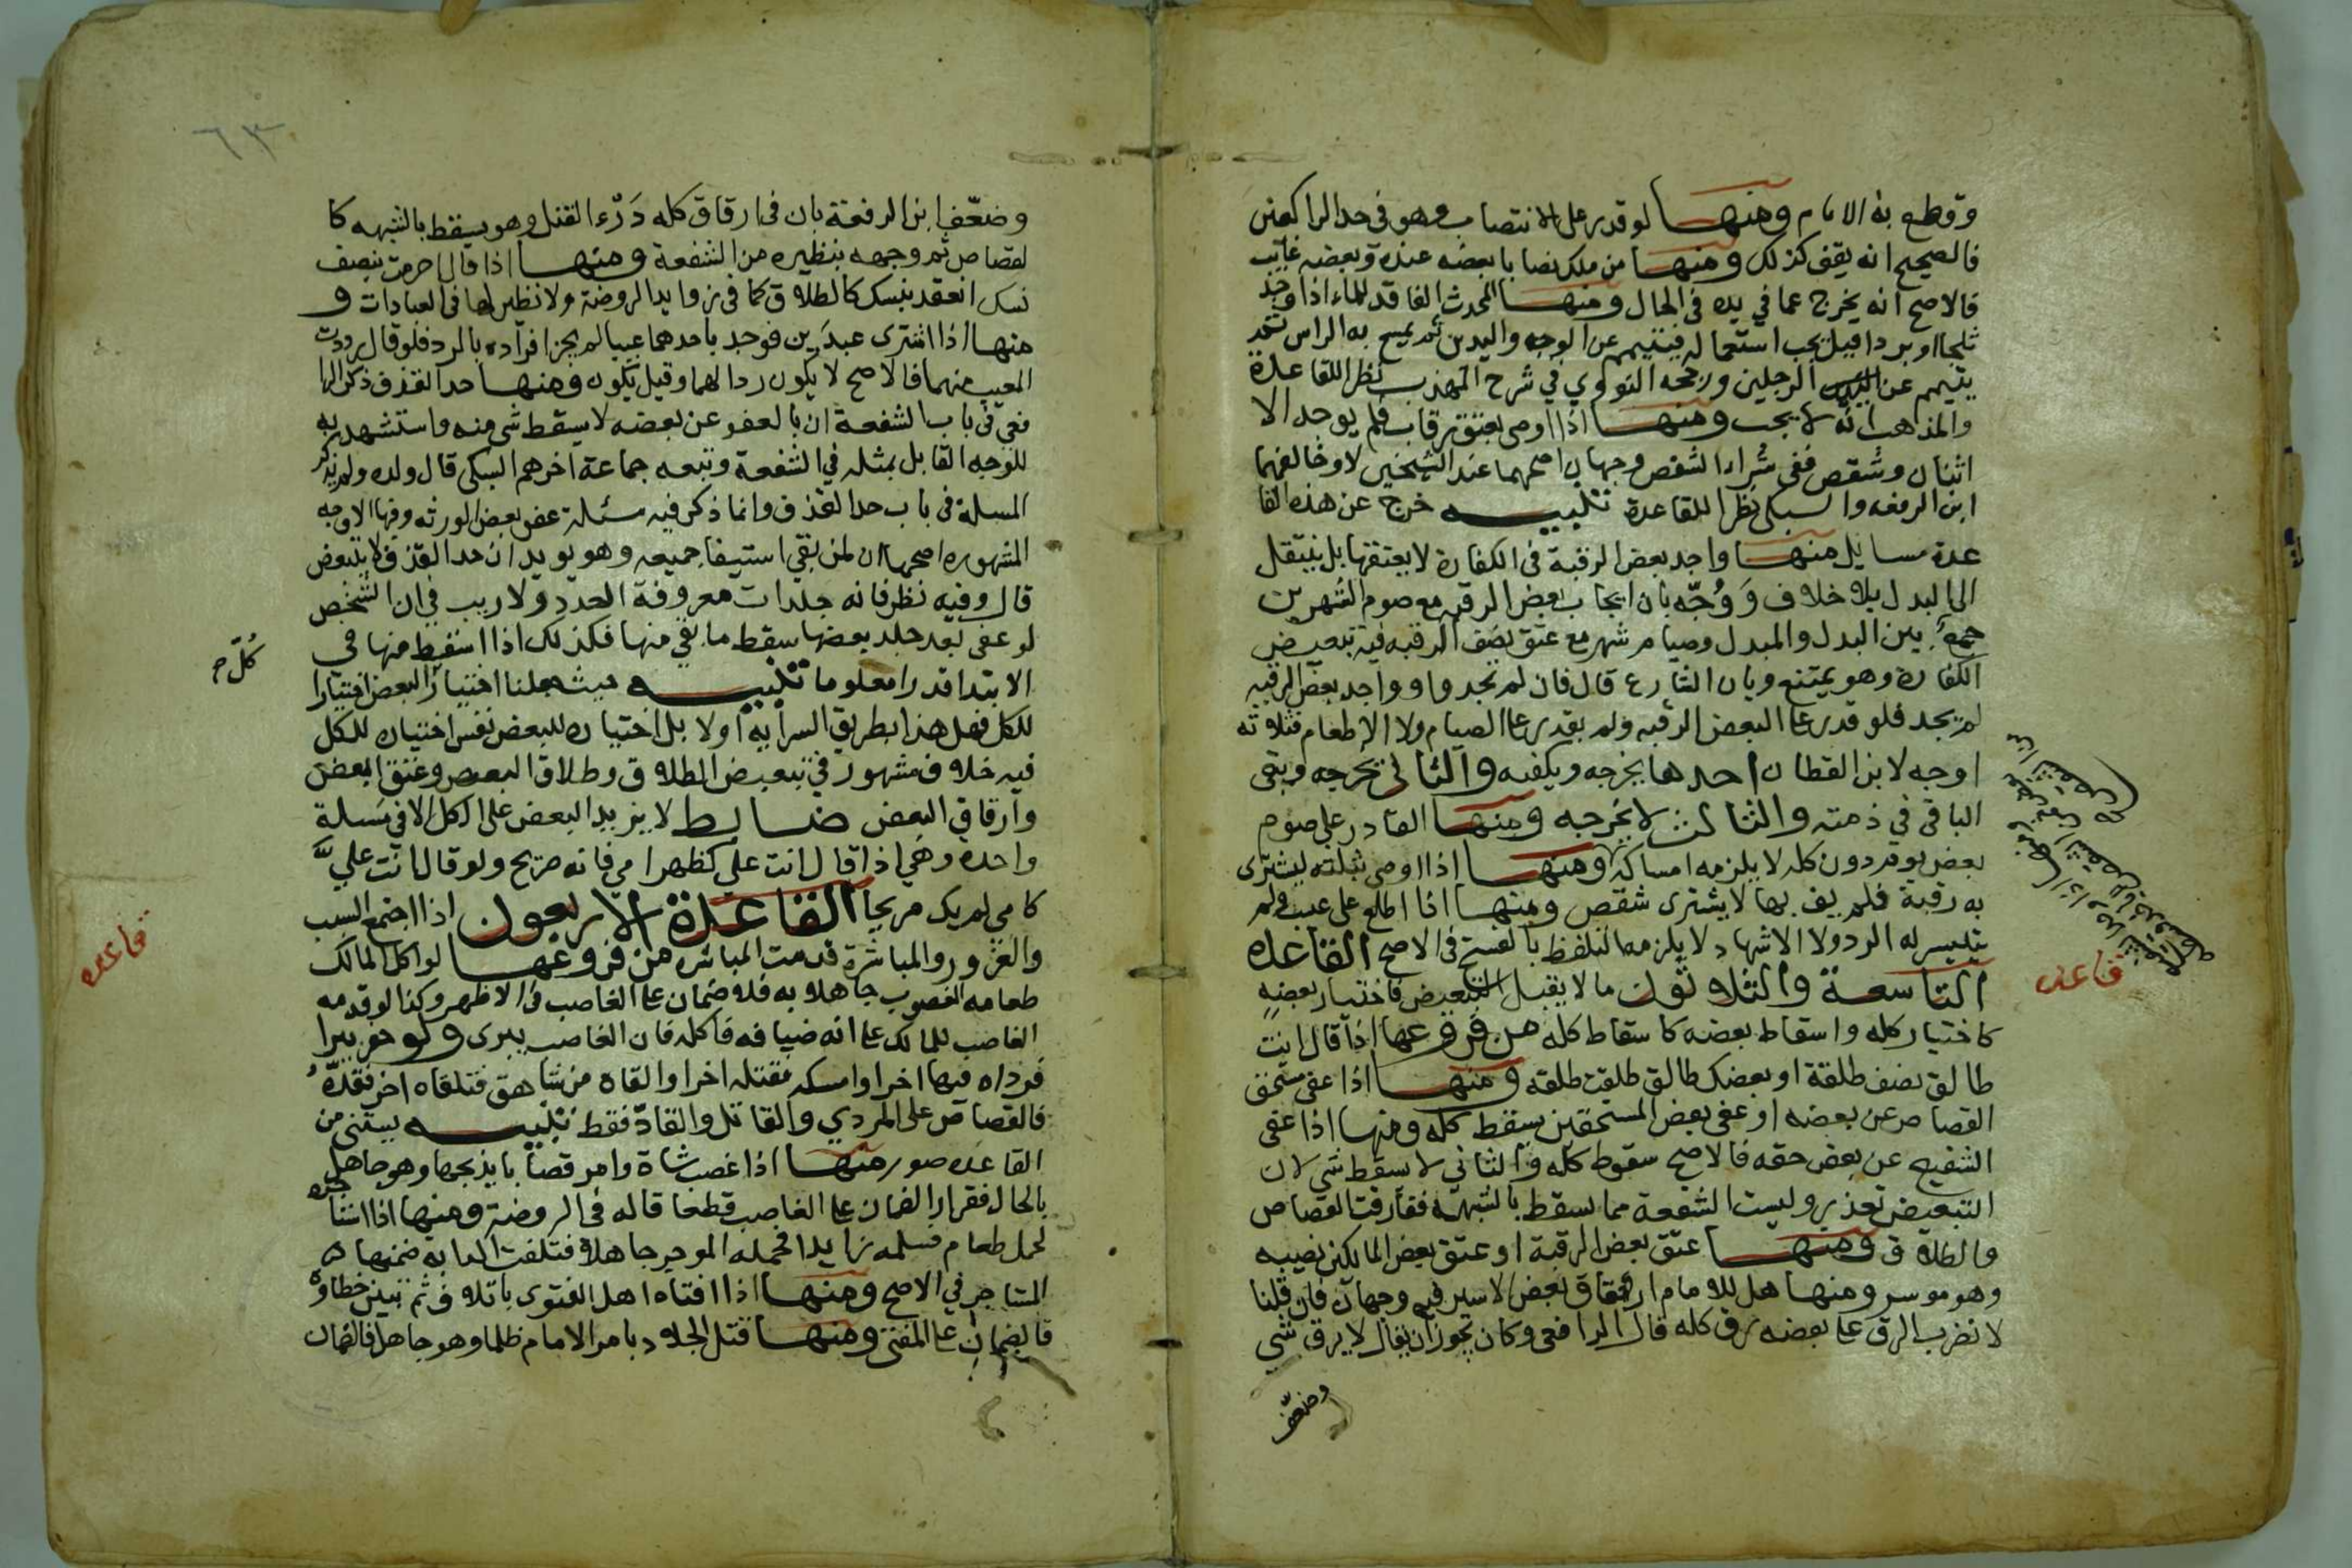 وقطع به الامام ومنهـــا لو قدر على الانتصاب وهو في حد الراكعين
فالصحيح انه يقف كذلك ومنهـــا من ملك نصابا بعضه عنده وبعضه غايب
فالاصح انه يخرج عما في يده في الحال ومنهـــا المحدث الفاقد للماء اذا وجد
ثلجا او بردا قيل يجب استعماله فيتيمم عن الوجه واليدين ثم يمسح به الراس ثم
يتيمم عن الرجلين ورجحه النووي في شرح المهذب نظرا للقاعدة
والمذاهب انه لا يجب ومنهـــا اذا اوصى بعتق رقاب فلم يوجد الا
اثنان وشقص ففي شراء الشقص وجهان اصحهما عند الشيخين لا وخالفهما
ابن الرفعه والسبكي نظرا للقاعدة تنبيـــه خرج عن هذه القا
عدة مسايل منهـــا واجد بعض الرقبة في الكفارة لا يعتقها بل ينتقل
الى البدل بلا خلاف وَوُجّه بان ايجاب بعض الرقبه مع صوم الشهرين
جمع بين البدل والمبدل وصيام شهر مع عتق نصف الرقبه فيه تبعيض
الكفارة وهو يمتنع وبان الشارع قال فان لم تجدوا وواجد بعض الرقبه
لم يجد فلو قدر على البعض الرقبه ولم يقدر على الصيام ولا الاطعام فثلاثه
اوجه لابن القطان احدها يخرجه ويكفيه والثاني يخرجه ويبقى
الباقي في ذمته والثالث لا يخرجه ومنهـــا القادر على صوم
بعض يوم دون كله لا يلزمه امساكه ومنهـــا اذا اوصى بثلثه ليشترى
به رقبة فلم يف بها لا يشترى شقص ومنهـــا اذا اطلع على عيب ولم
يتيسر له الرد ولا الاشهاد لا يلزمه التلفظ بالفسخ في الاصح القاعده
التاسعة والثلاثون ما لا يقبل التبعيض فاختيار بعضه
كاختيار كله واسقاط بعضه كاسقاط كله من فروعها اذا قال انت
طالق نصف طلقة او بعضك طالق طلقت طلقه ومنهـــا اذا عفى مستحق
القصاص عن بعضه او عفى بعض المستحقين سقط كله ومنها اذا عفى
الشفيع عن بعض حقه فالاصح سقوط كله والثاني لا يسقط شي لان
التبعيض تعذر وليست الشفعة مما يسقط بالشبهه ففارقت القصاص
والطلاق ومنهـــا عتق بعض الرقبة او عتق بعض المالكين نصيبه
وهو موسر ومنهـا هل للامام ارقاق بعض الاسير فيه وجهان فان قلنا
لا فضرب الرق على بعضه رق كله قال الرافعي وكان يجوز ان يقال لا يرق شي
وضعّف
قاعده
وضعّف ابن الرفعة بان في ارقاق كله دَرْء القتل وهو يسقط بالشبهه كا
لقصاص ثم وجهه بنظيره من الشفعة ومنهـــا اذا قال احرمت بنصف
نسك انعقد بنسك كالطلاق كما في زوايد الروضة ولا نظير لها في العبادات و
منهـا اذا اشترى عبدَين فوجد باحدهما عيبا لم يجز افراده بالرد فلو قال رددت
المعيب منهما فالاصح لا يكون ردا لهما وقيل يكون ومنهـــا حد القذف ذكر الرا
فعي في باب الشفعة ان بالعفو عن بعضه لا يسقط شي منه واستشهد به
للوجه القايل بمثله في الشفعة وتبعه جماعة اخرهم السبكي قال ولده ولم يذكر
المسلة في باب حد القذف وانما ذكر فيه مسئلة عفو بعض الورثه وفيها الاوجه
المشهوره اصحها ان لمن بقي استيفا جميعه وهو يويد ان حد القذف لا يتبعض
قال وفيه نظر فانه جلدات معروفة العدد ولا ريب في ان الشخص
لو عفى بعد جلد بعضها سقط ما بقي منها فكذلك اذا اسقط منها في
الابتدا قدرا معلوما تنبيـــه حيث جعلنا اختيار البعض اختيارا
للكل فهل هذا بطريق السراية اولا بل اختياره للبعض نفس اختياره للكل
فيه خلاف مشهور في تبعيض الطلاق وطلاق البعض وعتق البعض
وارقاق البعض ضابط لا يزيد البعض على الكل الا في مسلة
واحدة وهي اذا قال انت علي كظهر امي فانه صريح ولو قال انت عليَّ
كامي لم يك صريحا القاعدة الاربعون اذا اجتمع السبب
والغرور والمباشرة قدمت المباشره من فروعهـــا لو اكل المالك
طعامه المغصوب جاهلا به فلا ضمان على الغاصب في الاظهر وكذا لو قدمه
الغاصب للمالك على انه ضيافه فاكله فان الغاصب يبرى ولو حفر بيرا
فرداه فيها اخر او امسكه فقتله اخر او القاه من شاهق فتلقاه اخر فقدّه
فالقصاص على المردي والقاتل والقادّ فقط تنبيـــه يستثنى من
القاعده صور منهـــا اذا غصب شاة وامر قصابا بذبحها وهو جاهل
بالحال فقرار الضمان على الغاصب قطعا قاله في الروضة ومنها اذا استاجره
لحمل طعام فسلمه زايدا فحمله الموجر جاهلا فتلفت الدابه ضمنها
المستاجر في الاصح ومنهـــا اذا افتاه اهل الفتوى باتلاف ثم تبين خطاوه
فالضمان على المفتي ومنهـــا قتل الجلاد بامر الامام ظلما وهو جاهل فالضمان
قاعده
٦٣